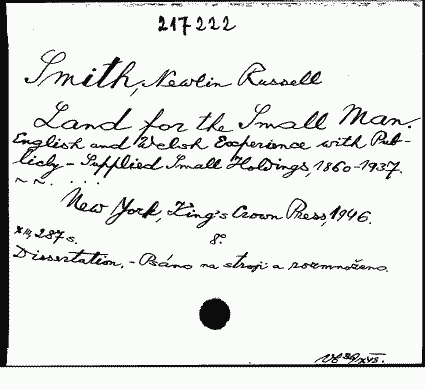 217222
Smith, Newlin Russell
Land for the Small Man.
English and Welsh Experience with Pub-
licly - Supplied Small Holdings, 1860-1937.
~ ~. . . .
New York, King's Crown Press, 1946.
XII, 287 s. 8°.
Dissertation. - Psáno na stroji a rozmnoženo.